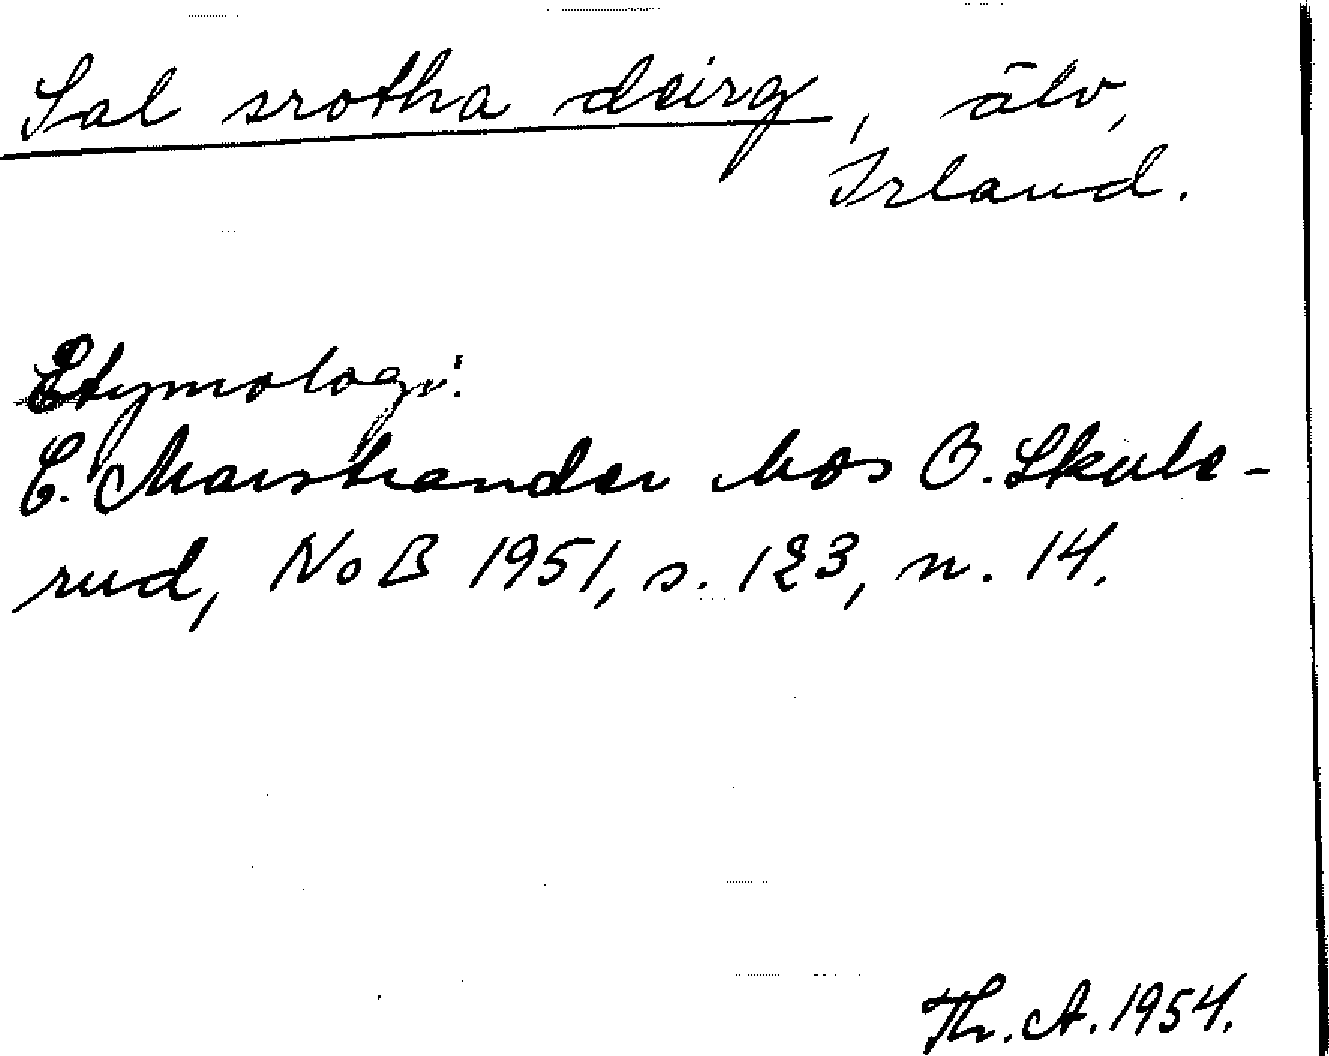 Sal srotha deirg, älv,
Irland.
Etymologi:
C. Marstrander hos O. Skule-
rud, NoB 1951, s. 123, n. 14.
Th. A. 1954.